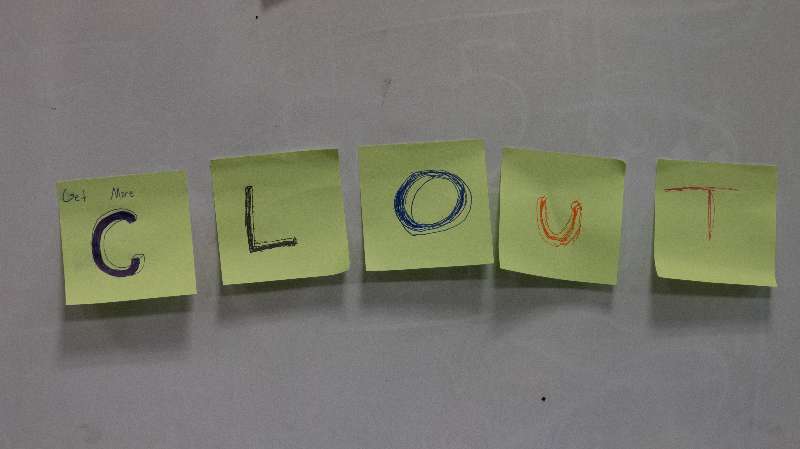 Get More
C L O U T